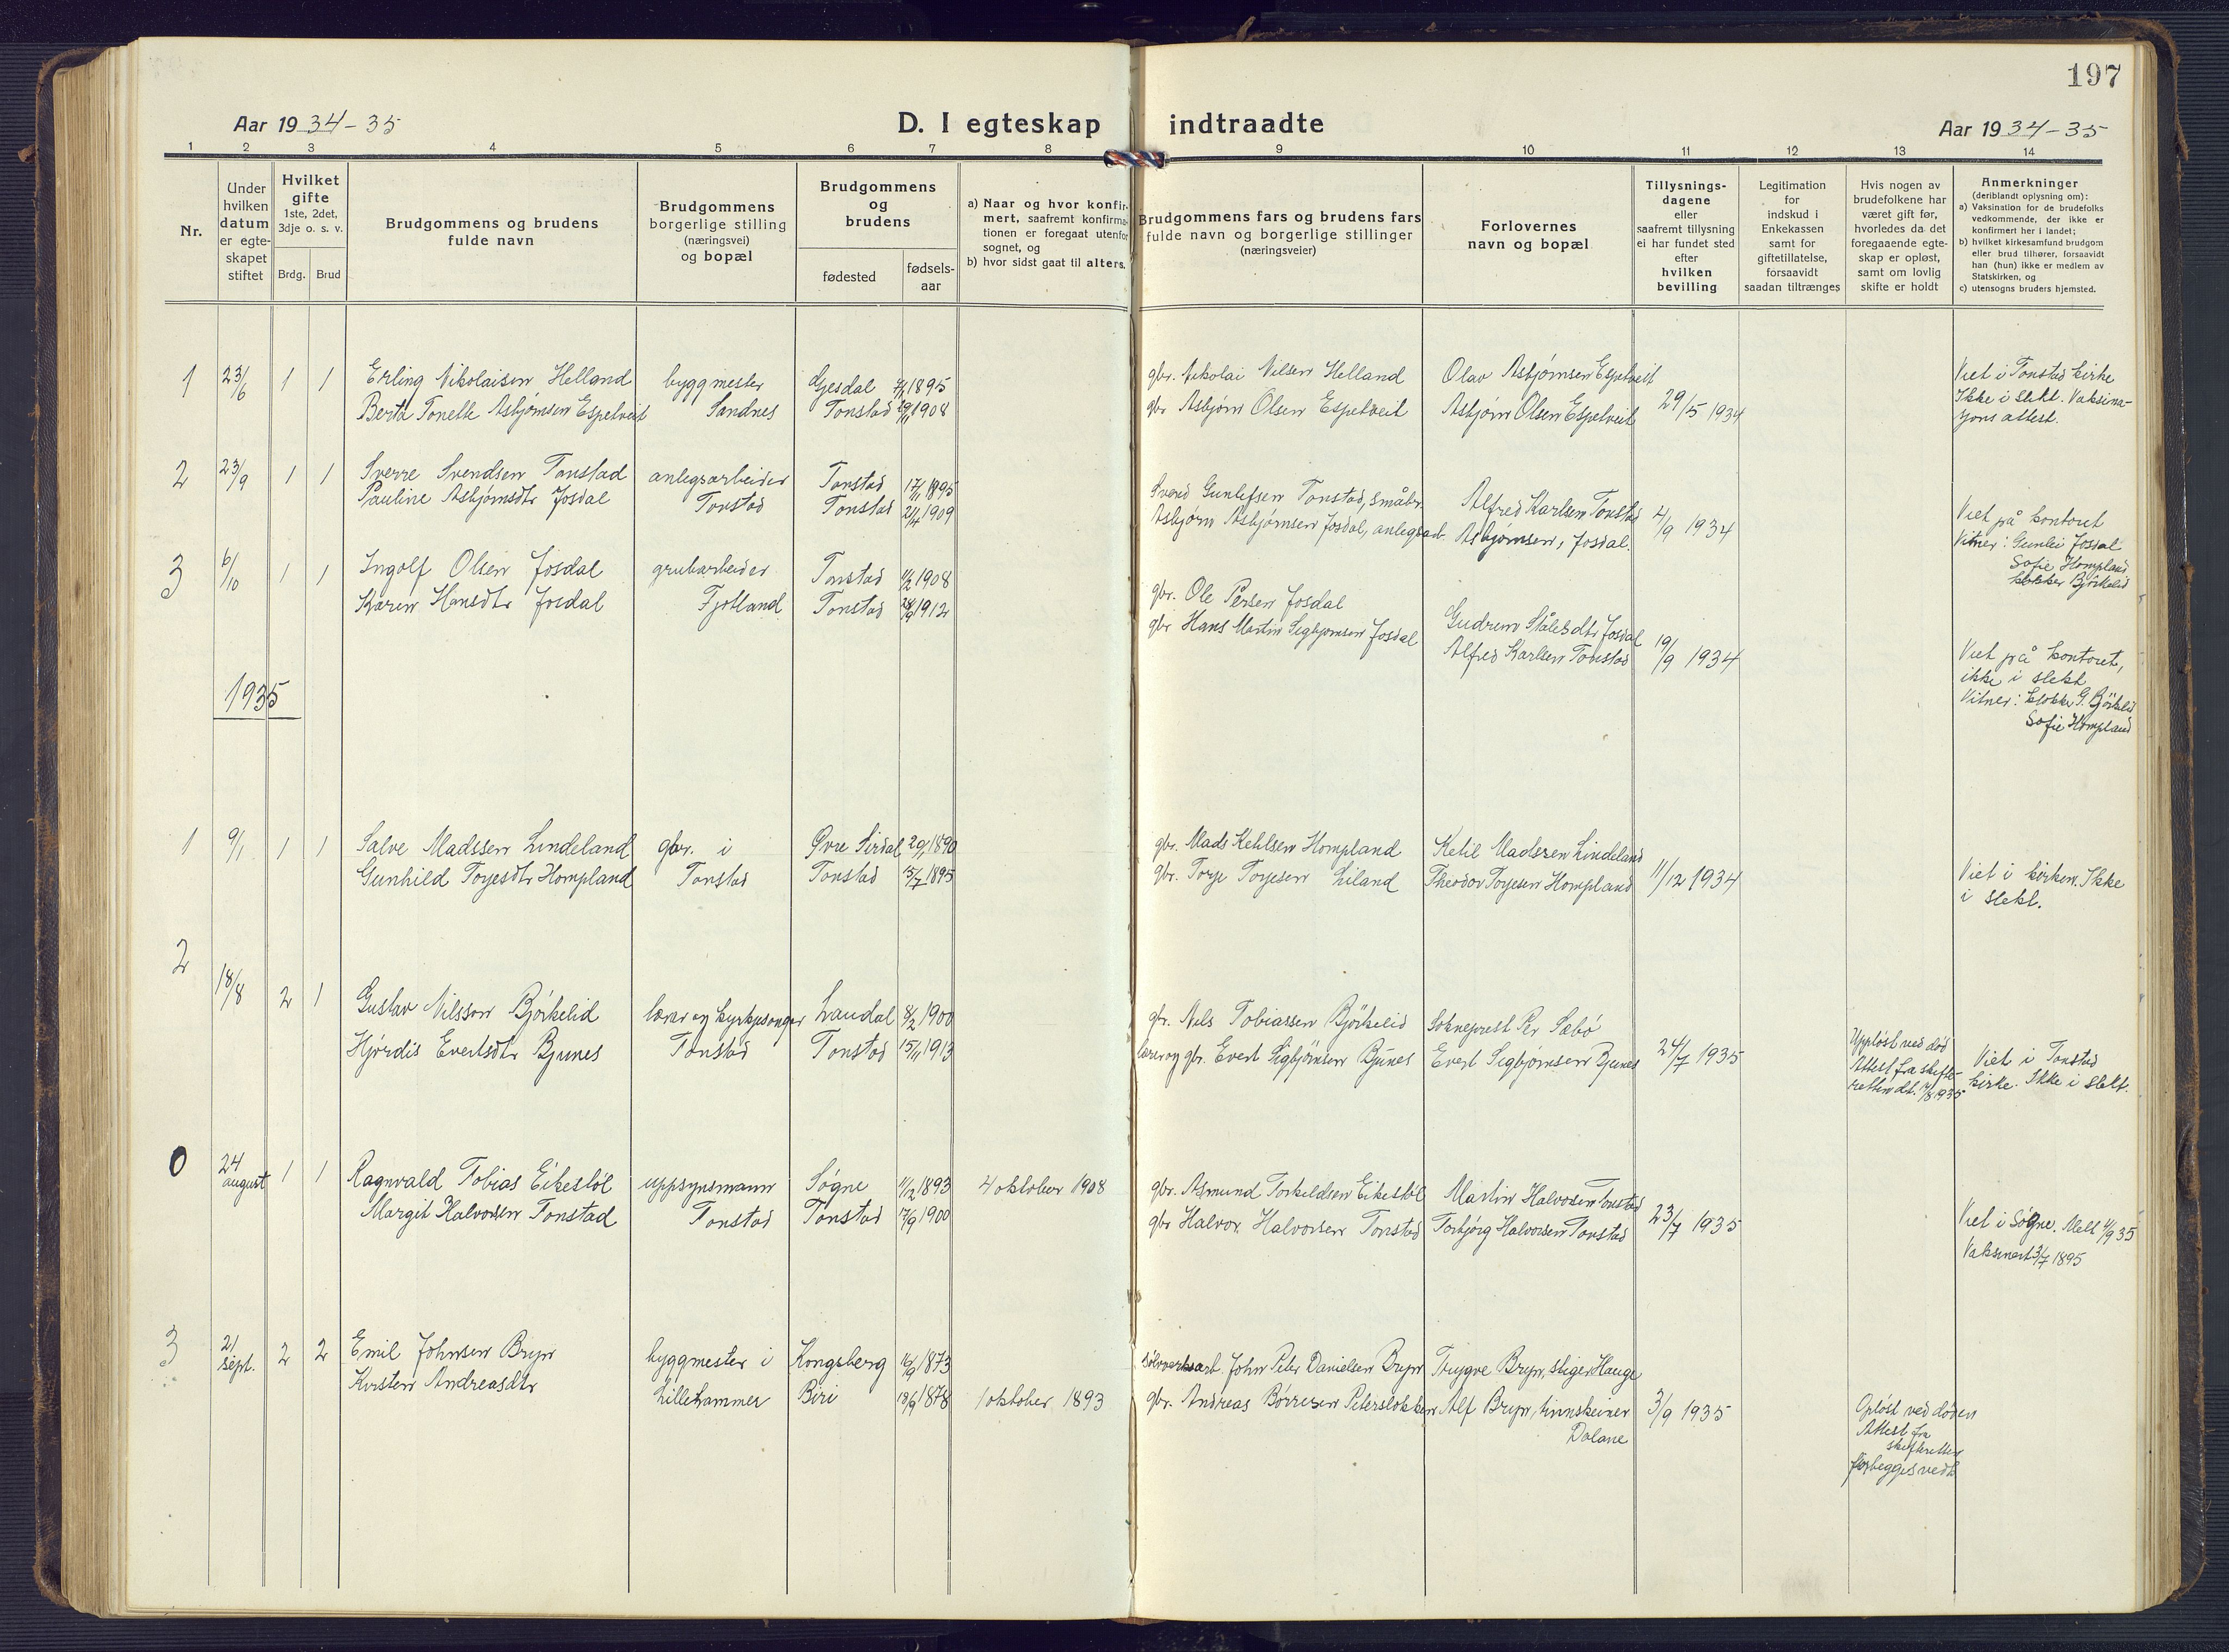 197
Aar 19 34-35
D. I egteskap
indtraadte
Aar 19 34-35
1 2 3 4 5 6 7 8 9 10 11 12 13 14
Nr.
Under
hvilken
datum
er egte-
skapet
stiftet
Hvilket
gifte
1ste, 2det,
3dje o. s. v.
Brdg. Brud
Brudgommens og brudens
fulde navn
Brudgommens
borgerlige stilling
(næringsvei)
og bopæl
Brudgommens
og
brudens
fødested
fødsels-
aar
a) Naar og hvor konfir-
mert, saafremt konfirma-
tionen er foregaat utenfor
sognet, og
b) hvor sidst gaat til alters.
Brudgommens fars og brudens fars
fulde navn og borgerlige stillinger
(næringsveier)
Forlovernes
navn og bopæl
Tillysnings-
dagene
eller
saafremt tillysning
ei har fundet sted
efter
hvilken
bevilling
Legitimation
for
indskud i
Enkekassen
samt for
giftetillatelse,
forsaavidt
saadan tiltrænges
Hvis nogen av
brudefolkene har
været gift før,
hvorledes da det
foregaaende egte-
skap er opløst,
samt om lovlig
skifte er holdt
Anmerkninger
(deriblandt oplysning om):
a) Vaksination for de brudefolks
vedkommende, der ikke er
konfirmert her i landet;
b) hvilket kirkesamfund brudgom
eller brud tilhører, forsaavidt
han (hun) ikke er medlem av
Statskirken, og
c) utensogns bruders hjemsted.
1 23/6 1 1 Erling Nikolaisen Helland byggmester Gjesdal 1895 gbr. Nikolai Nilsen Helland Olav Asbjørnsen Espetveit Viet i Tonstad kirke
Berta Tonette Asbjørnsen Espetveit Sandnes Tonstad 1908 gbr Asbjørn Olsen Espetveit Asbjørn Olsen Espetveit 29/5 1934 Ikke i slekt. Vaksina-
jons attest.
2 23/9 1 1 Sverre Svendsen Tonstad anlegsarbeider Tonstad 17/11 1895 Svend Gunlefsen Tonstad, småbr. Alfred Karlsen Tonstad
Pauline Asbjørnsdtr Josdal Tonstad Tonstad 2/4 1909 Asbjørn Asbjørnsen Josdal, anlegsarb. Asbjørnsen, Josdal. 4/9 1934 Viet på kontoret
Vitner: Gunlei Josdal
Sofie Hompland
klokker Bjørkelid
3 6/10 1 1 Ingolf Olsen Josdal grubarbeider Tonstad 1908 gbr. Ole Persen Josdal Gudrun Ståletsdtr Josdal
Karen Hansdtr Josdal Fjotland Tonstad 1912 gbr Hans Martin Sigbjørnsen Josdal Alfred Karlsen Tonstad 19/9 1934 Viet på kontoret,
ikke i slekt
Vitner: klokker G. Bjørkelid
Sofie Hompland
1935
1 9/1 1 1 Salve Madssen Lindeland gbr. i Øvre Sirdal 20/1 1890 gbr. Mads Ketilsen Hompland Ketil Madssen Lindeland
Gunhild Torjesdtr Hompland Tonstad Tonstad 15/7 1895 gbr. Torje Torjesen Liland Theodor Torjesen Hompland 11/12 1934 Viet i kirken. Ikke
i slekt.
2 18/8 2 1 Gustav Nilsson Bjørkelid lærer og kyrkjesonger Laudal 8/2 1900 gbr. Nils Tobiassen Bjørkelid Sokneprest Per Sæbø
Hjørdis Evertsdtr Bjunes Tonstad Tonstad 15/11 1913 lærer og gbr. Evert Sigbjørnsen Bjunes Evert Sigbjørnsen Bjunes 24/7 1935 Uppløst ved død
Attest fra skifte-
retten dt. 1935 Viet i Tonstad
kirke. Ikke i slekt.
0 24 august 1 1 Ragnvald Tobias Eikestøl uppsynsmann Søgne 11/2 1893 4 oktober 1908 gbr. Asmund Torkeldsen Eikestøl Martin Halvorsen Tonstad
Margit Halvorsen Tonstad Tonstad Tonstad 17/9 1900 gbr Halvor Halvorsen Tonstad Torbjørg Halvorsen Tonstad 23/7 1935 Viet i Søgne. Melt 4/9 35
Vaksinert 3/7 1895
3 21 sept. 2 2 Emil Johnsen Bryn byggmester i Kongsberg 16/9 1873 sølvverksarb John Peter Danielsen Bryn Trygve Bryn, stiger Hauge
Kirsten Andreasdtr Lillehammer Biri 13/9 1878 1 oktober 1893 gbr. Andreas Børresen Petersløkken Alf Bryn, Dalane 3/9 1935 Opløst ved døden
Attest fra
skifteretten
for begges vedk